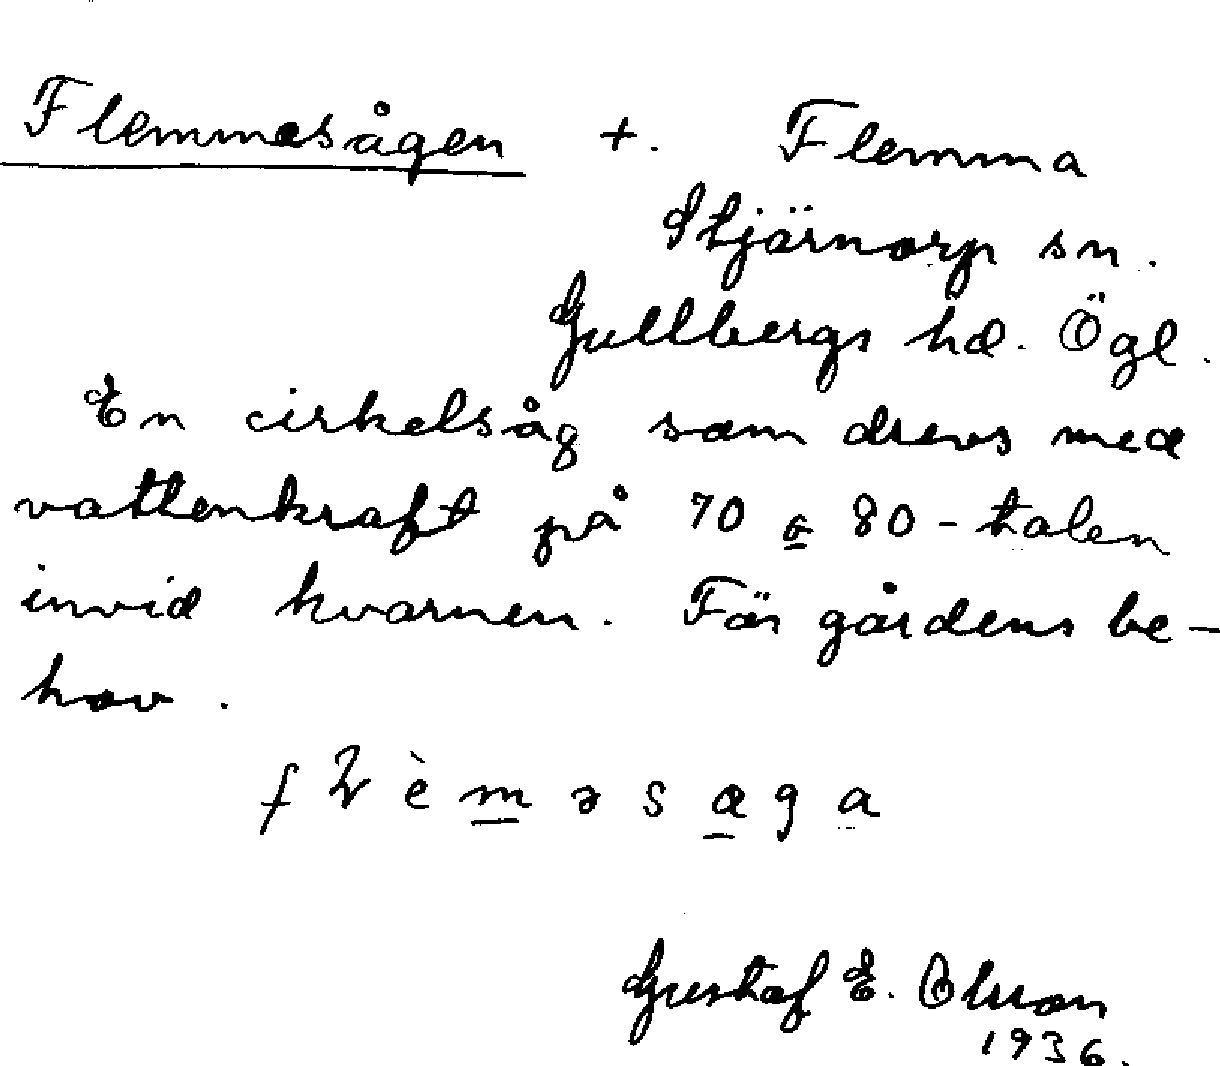 Flemmesågen +. Flemma
Stjärnorp sn.
Gullbergs hd. Ögl.
En cirkelsåg som drevs med
vattenkraft på 70 à 80-talen
invid kvarnen. För gårdens be-
hov.
Gustaf E. Olsson
1936.